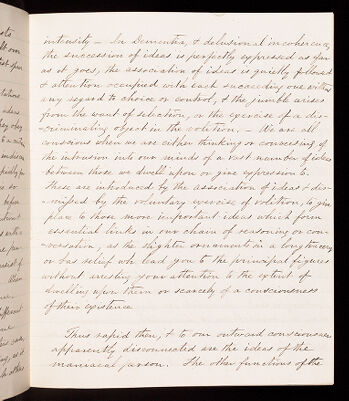 intensity — In Dementia, & delusional incoherence,
the succession of ideas is perfectly expressed as far
as it goes, the association of ideas is quietly followed
& attention occupied with each succeeding one without
any regard to choice or control, & the jumble arises
from the want of selection, or the exercise of a dis-
criminating object in the volition, — We are all
conscious when we are either thinking or conversing of
the intrusion into our minds of a vast number of ideas
between those we dwell upon or give expression to.
These are introduced by the association of ideas & dis-
missed by the voluntary exercise of volition, to give
place to those more important ideas which form
essential links in our chain of reasoning or con-
versation, as the slighter ornaments in a long
or bas relief which lead you to the principal figures
without arresting your attention to the extent of
dwelling upon them or scarcely of a consciousness
of their existence
Thus rapid then, & to our outward consciousness
apparently disconnected are the ideas of the
maniacal person. The other functions of the